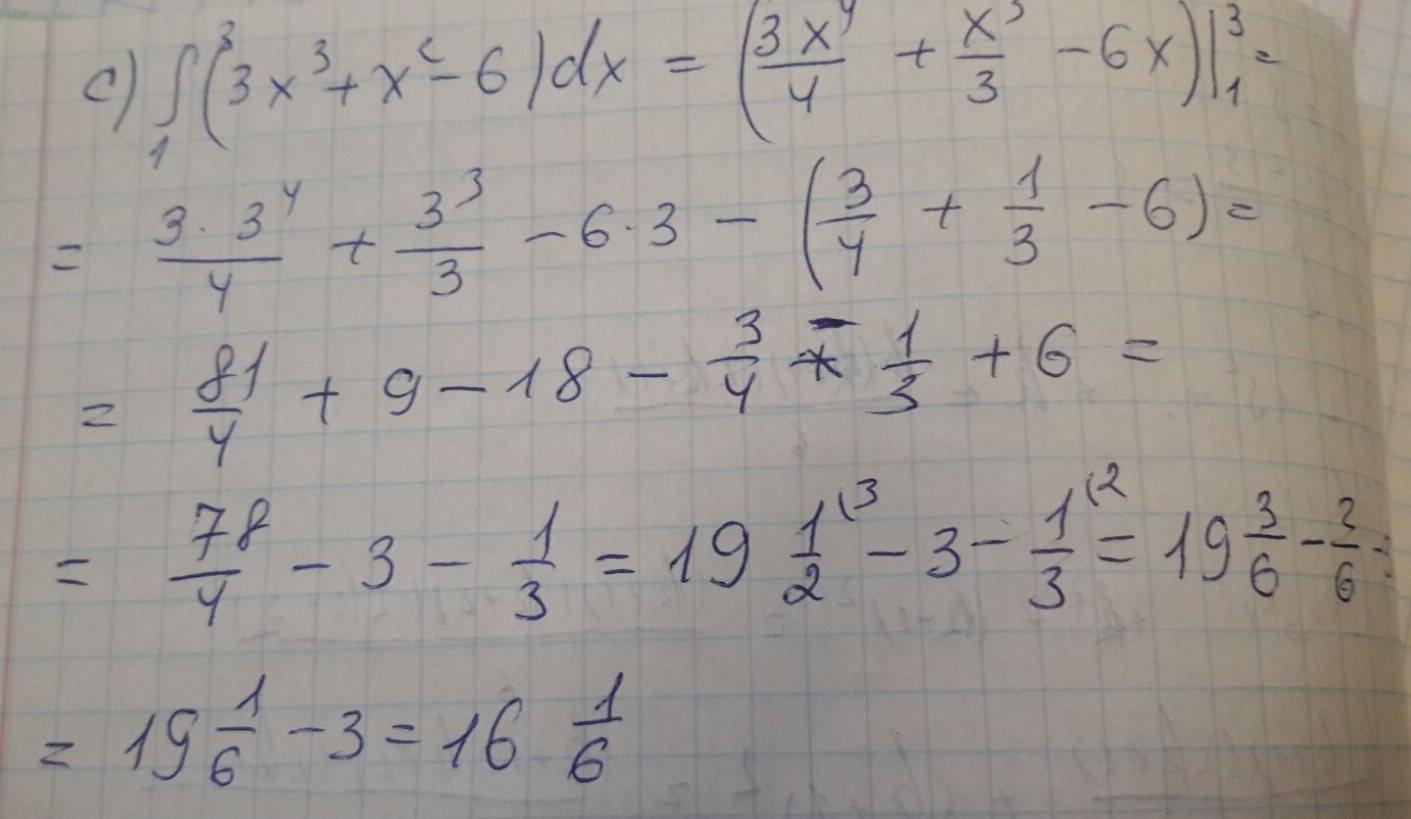 c) ∫₁³ (3x³ + x² - 6) dx = (3x⁴/4 + x³/3 - 6x)|₁³ =
= 3·3⁴/4 + 3³/3 - 6·3 - (3/4 + 1/3 - 6) =
= 81/4 + 9 - 18 - 3/4 - 1/3 + 6 =
= 78/4 - 3 - 1/3 = 19 1/2 (3 - 3 - 1/3 (2 = 19 3/6 - 2/6 -
= 19 1/6 - 3 = 16 1/6